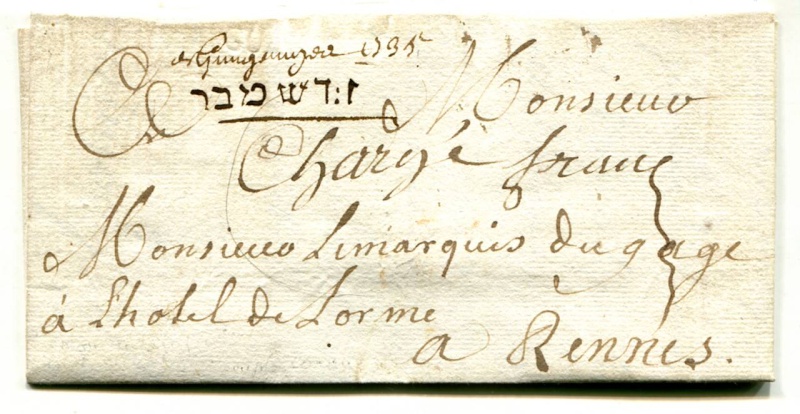 de Guingamp ce 1735
ז:דשמבר
A Monsieur
Chargé franc
A Monsieur Le marquis du gage
à L'hotel de Lorme
a Rennes.